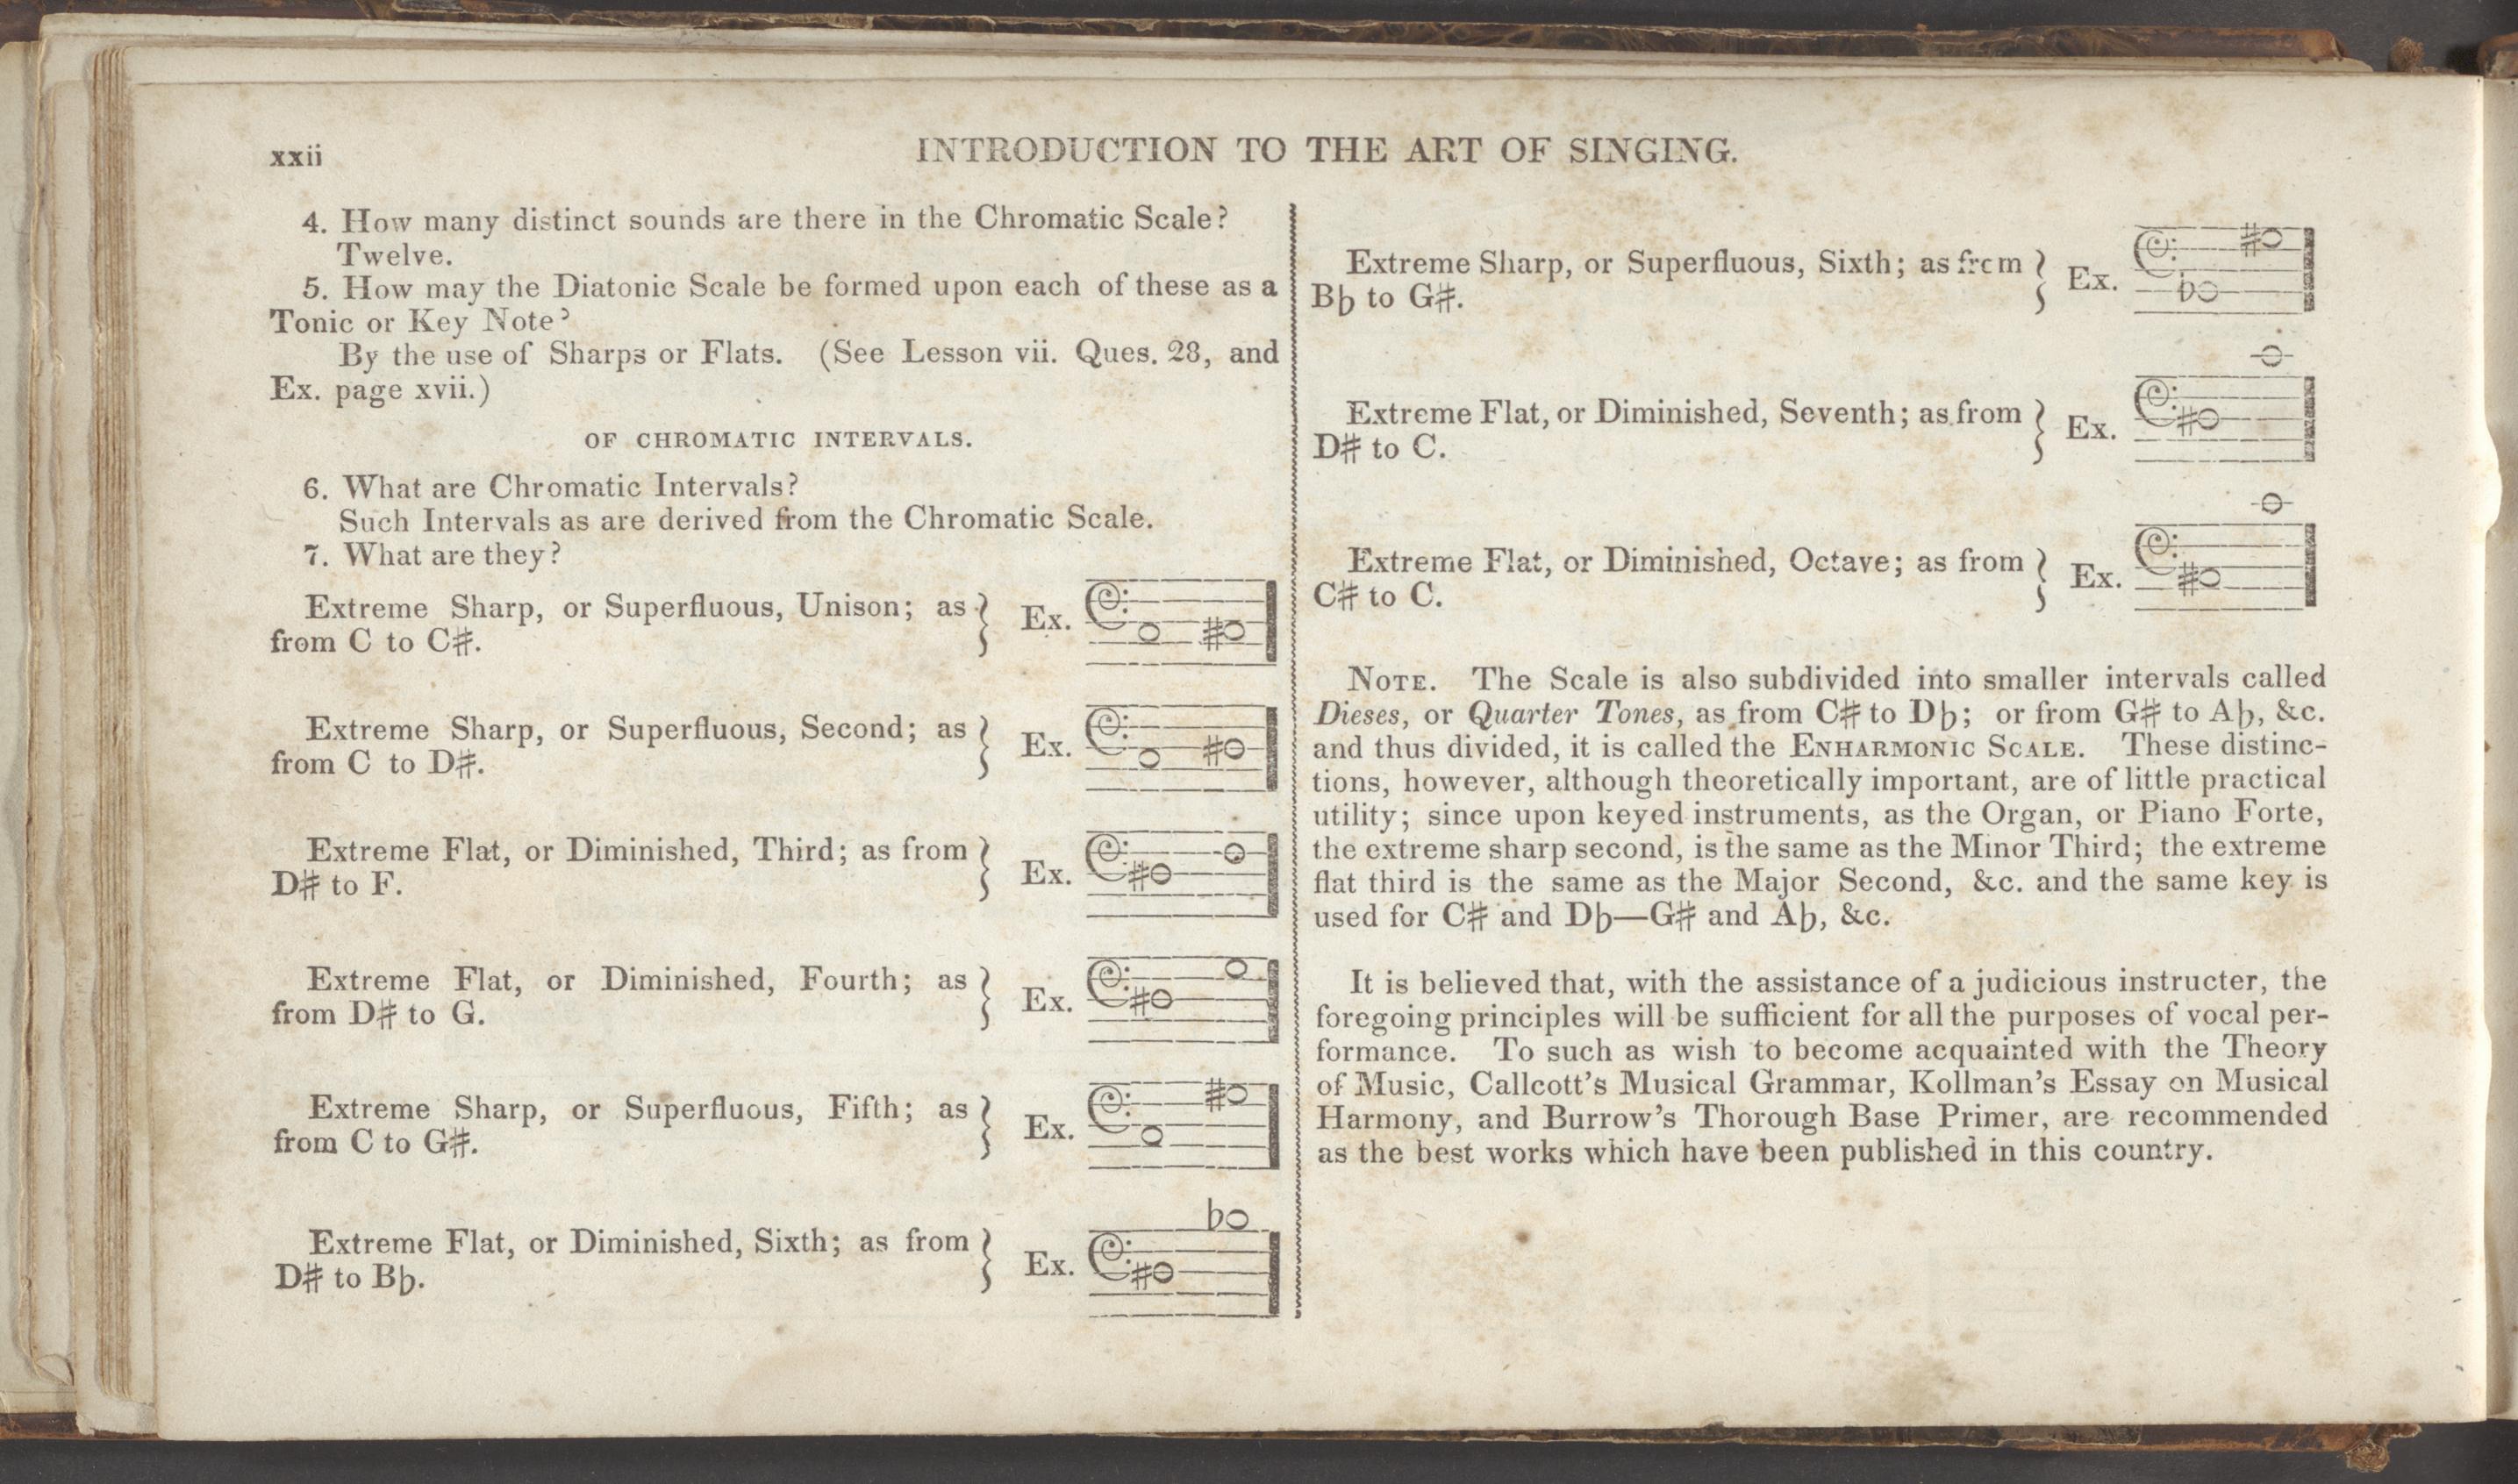 xxii
INTRODUCTION TO THE ART OF SINGING.
4. How many distinct sounds are there in the Chromatic Scale?
Twelve.
5. How may the Diatonic Scale be formed upon each of these as a
Tonic or Key Note?
By the use of Sharps or Flats. (See Lesson vii. Ques. 28, and
Ex. page xvii.)
OF CHROMATIC INTERVALS.
6. What are Chromatic Intervals?
Such Intervals as are derived from the Chromatic Scale.
7. What are they?
Extreme Sharp, or Superfluous, Unison; as
from C to C♯.
Ex.
Extreme Sharp, or Superfluous, Second; as
from C to D♯.
Ex.
Extreme Flat, or Diminished, Third; as from
D♯ to F.
Ex.
Extreme Flat, or Diminished, Fourth; as
from D♯ to G.
Ex.
Extreme Sharp, or Superfluous, Fifth; as
from C to G♯.
Ex.
Extreme Flat, or Diminished, Sixth; as from
D♯ to B♭.
Ex.
Extreme Sharp, or Superfluous, Sixth; as from
B♭ to G♯.
Ex.
Extreme Flat, or Diminished, Seventh; as from
D♯ to C.
Ex.
Extreme Flat, or Diminished, Octave; as from
C♯ to C.
Ex.
NOTE. The Scale is also subdivided into smaller intervals called
Dieses, or Quarter Tones, as from C♯ to D♭; or from G♯ to A♭, &c.
and thus divided, it is called the ENHARMONIC SCALE. These distinc-
tions, however, although theoretically important, are of little practical
utility; since upon keyed instruments, as the Organ, or Piano Forte,
the extreme sharp second, is the same as the Minor Third; the extreme
flat third is the same as the Major Second, &c. and the same key is
used for C♯ and D♭—G♯ and A♭, &c.
It is believed that, with the assistance of a judicious instructer, the
foregoing principles will be sufficient for all the purposes of vocal per-
formance. To such as wish to become acquainted with the Theory
of Music, Callcott's Musical Grammar, Kollman's Essay on Musical
Harmony, and Burrow's Thorough Base Primer, are recommended
as the best works which have been published in this country.